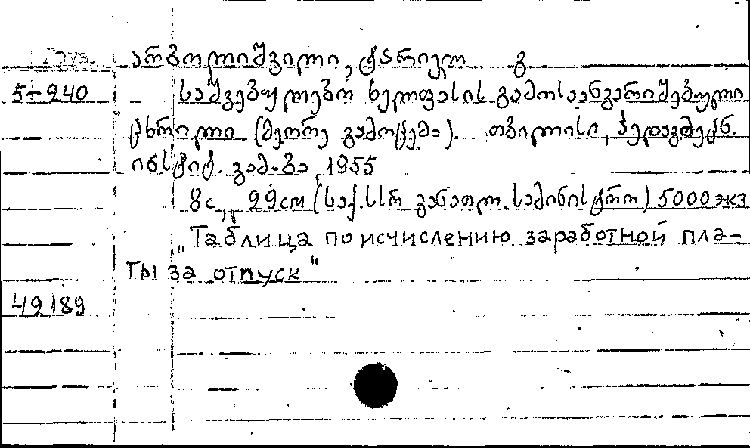 არბოლიშვილი, ტარიელ გ
5-240 საშვებულებო ხელფასის გამოსაანგარიშებელი
ცხრილი (მეორე გამოცემა). თბილისი, პედაგმეცნ.
ინსტიტ. გამ-ბა, 1955
8с, 22см (საქ.სსრ განათლ. სამინისტრო) 5000 экз
„Таблица по исчислению заработной пла-
ты за отпуск"
49189